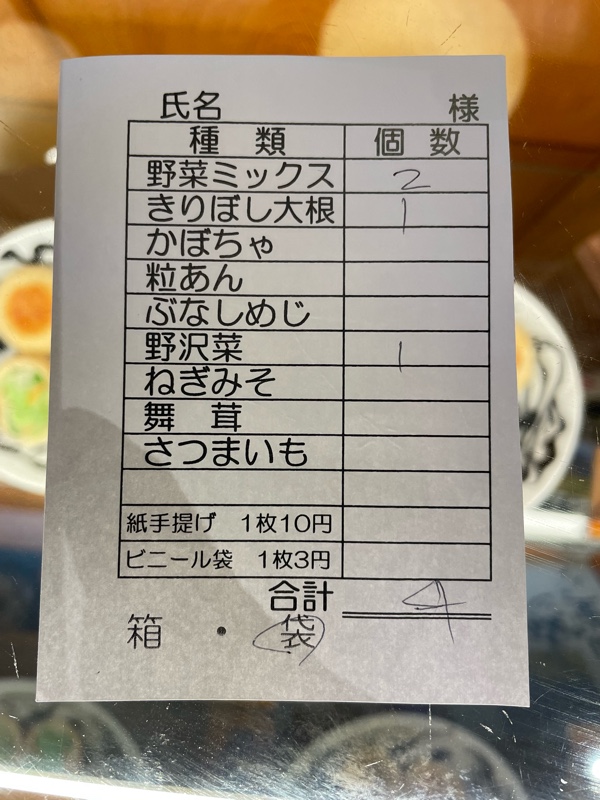 氏名 様
種類 個数
野菜ミックス 2
きりぼし大根 1
かぼちゃ
粒あん
ぶなしめじ
野沢菜 1
ねぎみそ
舞茸
さつまいも
紙手提げ 1枚10円
ビニール袋 1枚3円
合計 4
箱・袋